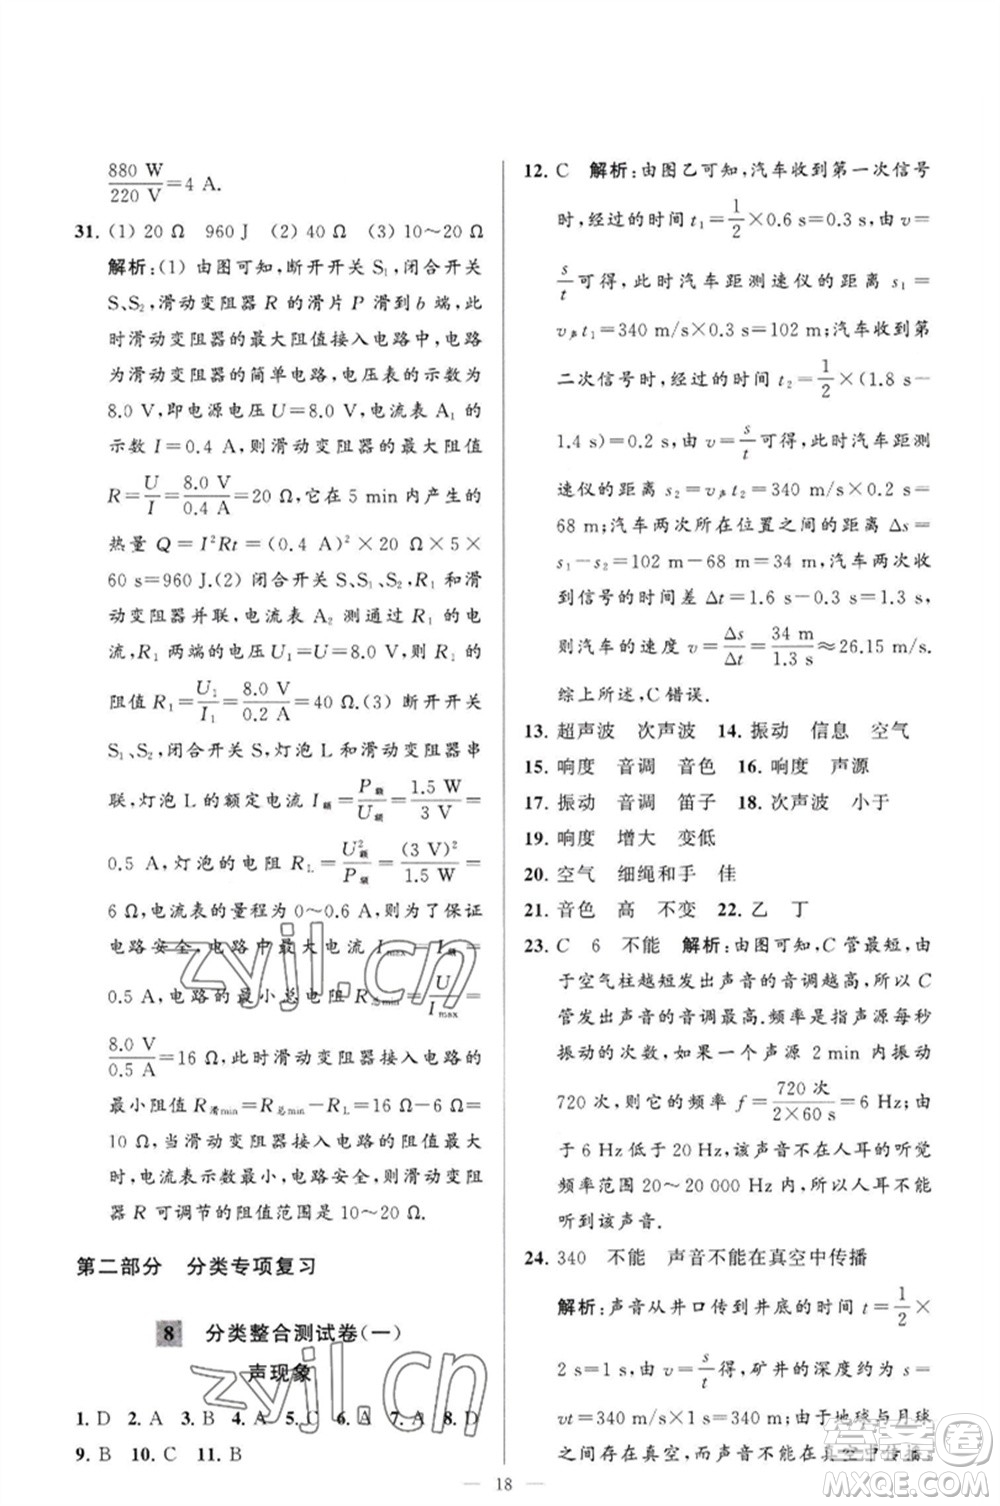 880 W/220 V=4 A.
31. (1) 20 Ω 960 J (2) 40 Ω (3) 10～20 Ω
解析:(1) 由图可知,断开开关 S₁,闭合开关
S、S₂,滑动变阻器 R 的滑片 P 滑到 b 端,此
时滑动变阻器的最大阻值接入电路中,电路
为滑动变阻器的简单电路,电压表的示数为
8.0 V,即电源电压 U=8.0 V,电流表 A₁ 的
示数 I=0.4 A,则滑动变阻器的最大阻值
R=U/I=8.0 V/0.4 A=20 Ω,它在 5 min 内产生的
热量 Q=I²Rt=(0.4 A)²×20 Ω×5×
60 s=960 J.(2) 闭合开关 S、S₁、S₂,R₁ 和滑
动变阻器并联,电流表 A₂ 测通过 R₁ 的电
流,R₁ 两端的电压 U₁=U=8.0 V,则 R₁ 的
阻值 R₁=U₁/I₁=8.0 V/0.2 A=40 Ω.(3) 断开开关
S₁、S₂,闭合开关 S,灯泡 L 和滑动变阻器串
联,灯泡 L 的额定电流 I额=P额/U额=1.5 W/3 V=
0.5 A,灯泡的电阻 R_L=U²额/P额=(3 V)²/1.5 W=
6 Ω,电流表的量程为 0～0.6 A,为了保证
电路安全,电路中最大电流 I_max=I额=
0.5 A,电路的最小总电阻 R总min=U/I_max=
8.0 V/0.5 A=16 Ω,此时滑动变阻器接入电路的
最小阻值 R滑min=R总min−R_L=16 Ω−6 Ω=
10 Ω,当滑动变阻器接入电路的阻值最大
时,电流表示数最小,电路安全,则滑动变阻
器 R 可调节的阻值范围是 10～20 Ω.
第二部分 分类专项复习
8 分类整合测试卷(一)
声现象
1. D 2. A 3. B 4. A 5. C 6. A 7. A 8. D
9. B 10. C 11. B
12. C 解析:由图乙可知,汽车收到第一次信号
时,经过的时间 t₁=1/2×0.6 s=0.3 s,由 v=
s/t可得,此时汽车距测速仪的距离 s₁=
v声t₁=340 m/s×0.3 s=102 m;汽车收到第
二次信号时,经过的时间 t₂=1/2×(1.8 s−
1.4 s)=0.2 s,由 v=s/t可得,此时汽车距测
速仪的距离 s₂=v声t₂=340 m/s×0.2 s=
68 m;汽车两次所在位置之间的距离 Δs=
s₁−s₂=102 m−68 m=34 m,汽车两次收
到信号的时间差 Δt=1.6 s−0.3 s=1.3 s,
则汽车的速度 v=Δs/Δt=34 m/1.3 s≈26.15 m/s.
综上所述,C 错误.
13. 超声波 次声波 14. 振动 信息 空气
15. 响度 音调 音色 16. 响度 声源
17. 振动 音调 笛子 18. 次声波 小于
19. 响度 增大 变低
20. 空气 细绳和手 佳
21. 音色 高 不变 22. 乙 丁
23. C 6 不能 解析:由图可知,C 管最短,由
于空气柱越短发出声音的音调越高,所以 C
管发出声音的音调最高.频率是指声源每秒
振动的次数,如果一个声源 2 min 内振动
720 次,则它的频率 f=720 次/2×60 s=6 Hz,由
于 6 Hz 低于 20 Hz,该声音不在人耳的听觉
频率范围 20～20 000 Hz 内,所以人耳不能
听到该声音.
24. 340 不能 声音不能在真空中传播
解析:声音从井口传到井底的时间 t=1/2×
2 s=1 s,由 v=s/t得,矿井的深度约为 s=
vt=340 m/s×1 s=340 m;由于地球与月球
之间存在真空,而声音不能在真空中传播.
18
zyjl.cn
zyjl.cn
答案圈
MXQE.COM